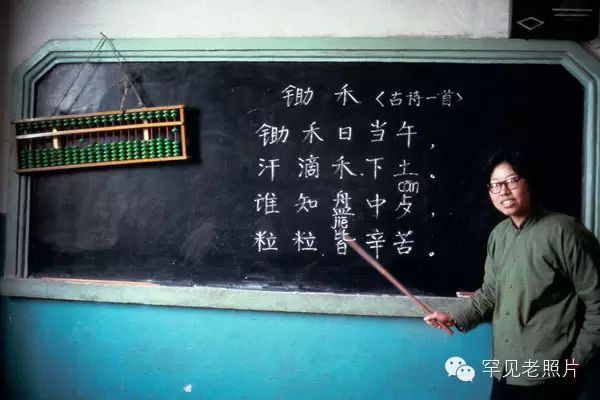 锄禾〈古诗一首〉
锄禾日当午，
汗滴禾下土。
can
谁知盘中歺，
jiē
粒粒皆辛苦。
罕见老照片